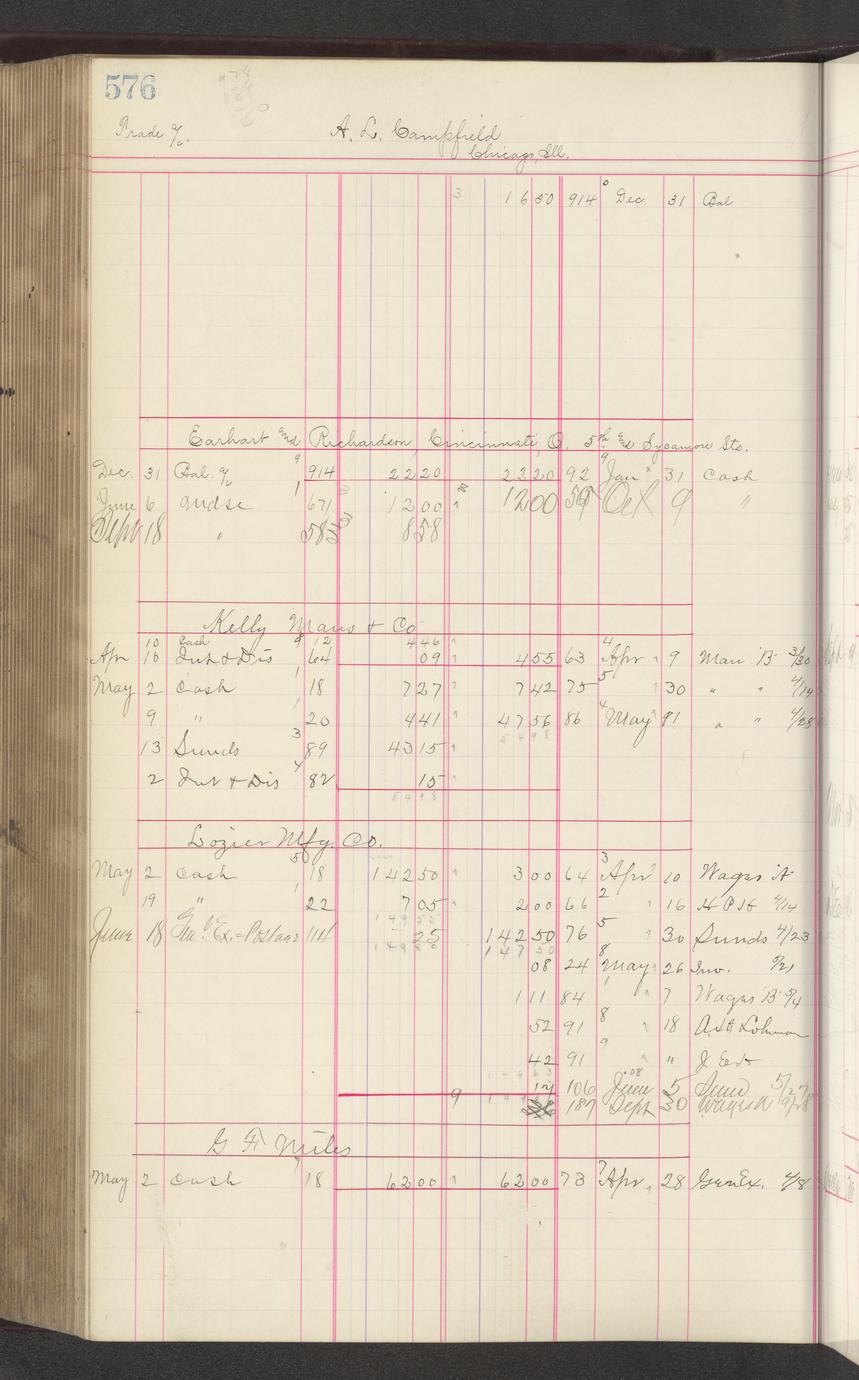 576
Trade a/c. A. L. Campfield
Chicago, Ill.
3 16 50 914 Dec. 31 Bal
Earhart and Richardson, Cincinnati, O. 5th and Sycamore Sts.
Dec. 31 Bal a/c 914 22 20 22 20 92 Jan 31 Cash
June 6 Mdse 671 12 00 12 00 59 Oct 9 "
Sept 18 " 585 8 58
Kelly Maus & Co
10 Cash 12 4 46
Apr 10 Int & Dis 64 09 4 55 63 Apr 9 Man B 3/30
May 2 Cash 18 7 27 7 42 75 " 30 " " 4/14
9 " 20 4 41 47 56 86 May 11 " " 4/28
13 Sunds 89 43 15
54 98
2 Int & Dis 82 15
54 98
Lozier Mfg. Co.
May 2 Cash 18 142 50 3 00 64 Apr 10 Wages A
19 " 22 7 05 2 00 66 " 16 H P H 4/14
149 55
June 18 Gen'l Ex. = Postage 114 25 142 50 76 " 30 Sunds 4/23
149 80 147 50
08 24 May 26 Inv.
1 11 84 " 7 Wages B 5/4
52 91 " 18 A H Lohman
42 91 " "
149 63
106 June 5 Sund 5/27
187 Sept 30 Wages A 9/28
G F Miles
May 2 Cash 18 62 00 62 00 73 Apr 28 Gen Ex. 4/8